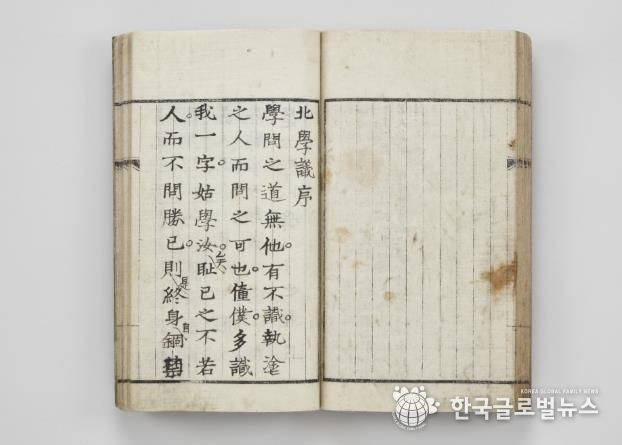 北學議序
學問之道無他。有不識。執塗
之人而問之可也。僮僕。多識
我一字。姑學汝矣。耻己之不若
人。而不問勝己。則是終身自錮
KOREA GLOBAL FAMILY NEWS
한국글로벌뉴스